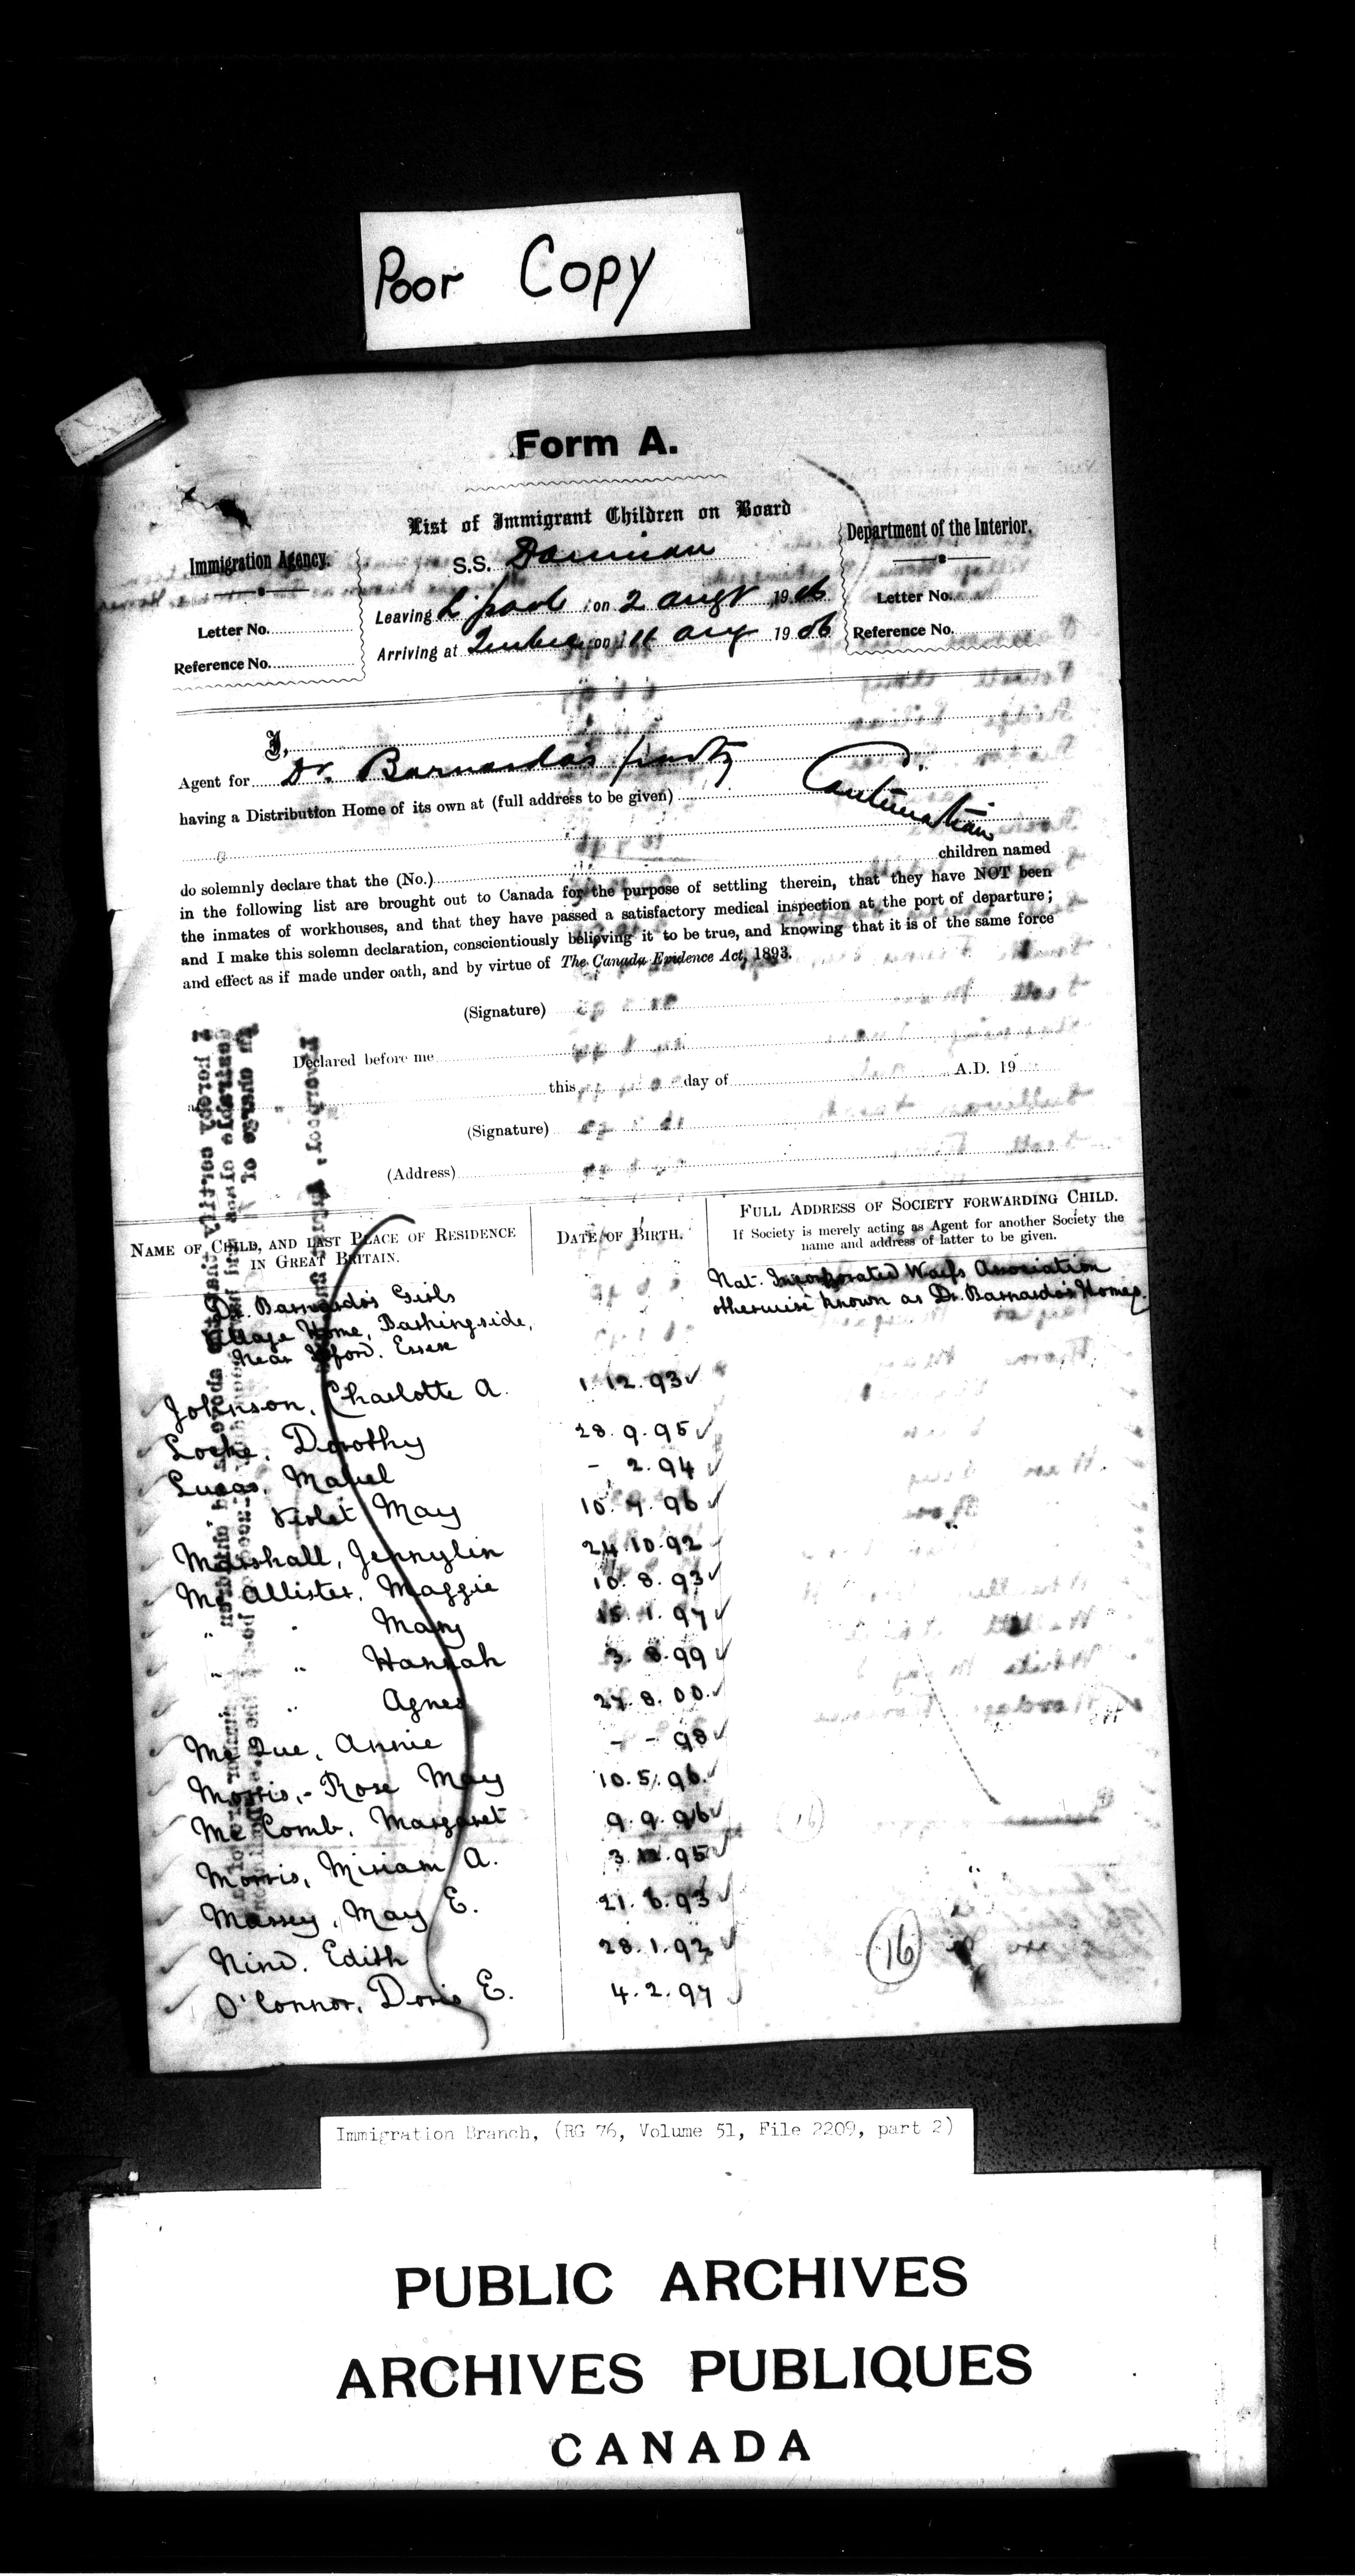 Poor Copy
Form A.
List of Immigrant Children on Board
Immigration Agency.
Letter No.
Reference No.
S.S.
Leaving L'pool on 2 augt 1906
Arriving at Quebec on 11 aug 1906
Department of the Interior.
Letter No.
Reference No.
I,
Agent for Dr. Barnardos party
having a Distribution Home of its own at (full address to be given) Continuation
do solemnly declare that the (No.) children named
in the following list are brought out to Canada for the purpose of settling therein, that they have NOT been
the inmates of workhouses, and that they have passed a satisfactory medical inspection at the port of departure;
and I make this solemn declaration, conscientiously believing it to be true, and knowing that it is of the same force
and effect as if made under oath, and by virtue of The Canada Evidence Act, 1893.
(Signature)
Declared before me
this day of A.D. 19
(Signature)
(Address)
NAME OF CHILD, AND LAST PLACE OF RESIDENCE
IN GREAT BRITAIN.
DATE OF BIRTH.
FULL ADDRESS OF SOCIETY FORWARDING CHILD.
If Society is merely acting as Agent for another Society the
name and address of latter to be given.
Dr. Barnardo's Girls
Village Home, Barkingside,
Near Ilford. Essex
Nat. Incorporated Waifs Association
otherwise known as Dr. Barnardo's Homes.
Johnson, Charlotte A. 1.12.93
Locke, Dorothy 28.9.95
Lucas, Mabel - 2.94
Violet May 10.7.96
Marshall, Jennylin 24.10.92
McAllister, Maggie 10.8.93
" " Mary 15.1.97
" " Hannah 3.8.99
" Agnes 27.8.00.
McQue, Annie - - 98
Morris, - Rose May 10.5.96.
McComb, Margaret 9.9.96
Morris, Miriam A. 3. .95
Massey, May E. 21.6.93
Nind. Edith 28.1.92
O'Connor, Doris E. 4.2.97
16
Immigration Branch, (RG 76, Volume 51, File 2209, part 2)
PUBLIC ARCHIVES
ARCHIVES PUBLIQUES
CANADA